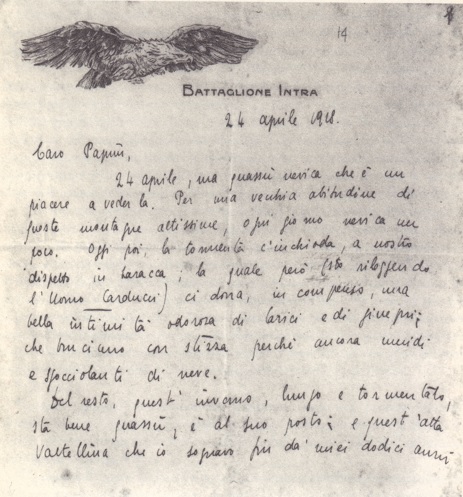 14
BATTAGLIONE INTRA
24 aprile 1918.
Caro Papini,
24 aprile, ma quassù nevica che è un
piacere a vederla. Per una vecchia abitudine di
queste montagne altissime, ogni giorno nevica un
poco. Oggi poi, la tormenta c'inchioda, a nostro
dispetto in baracca; la quale però (sto rileggendo
l'Uomo Carducci) ci dona, in compenso, una
bella intimità odorosa di larici e di ginepri;
che bruciano con stizza perché ancora umidi
e sgocciolanti di neve.
Del resto, quest'inverno, lungo e tormentato,
sta bene quassù, è al suo posto; e quest'alta
Valtellina che io sognavo fin da' miei dodici anni